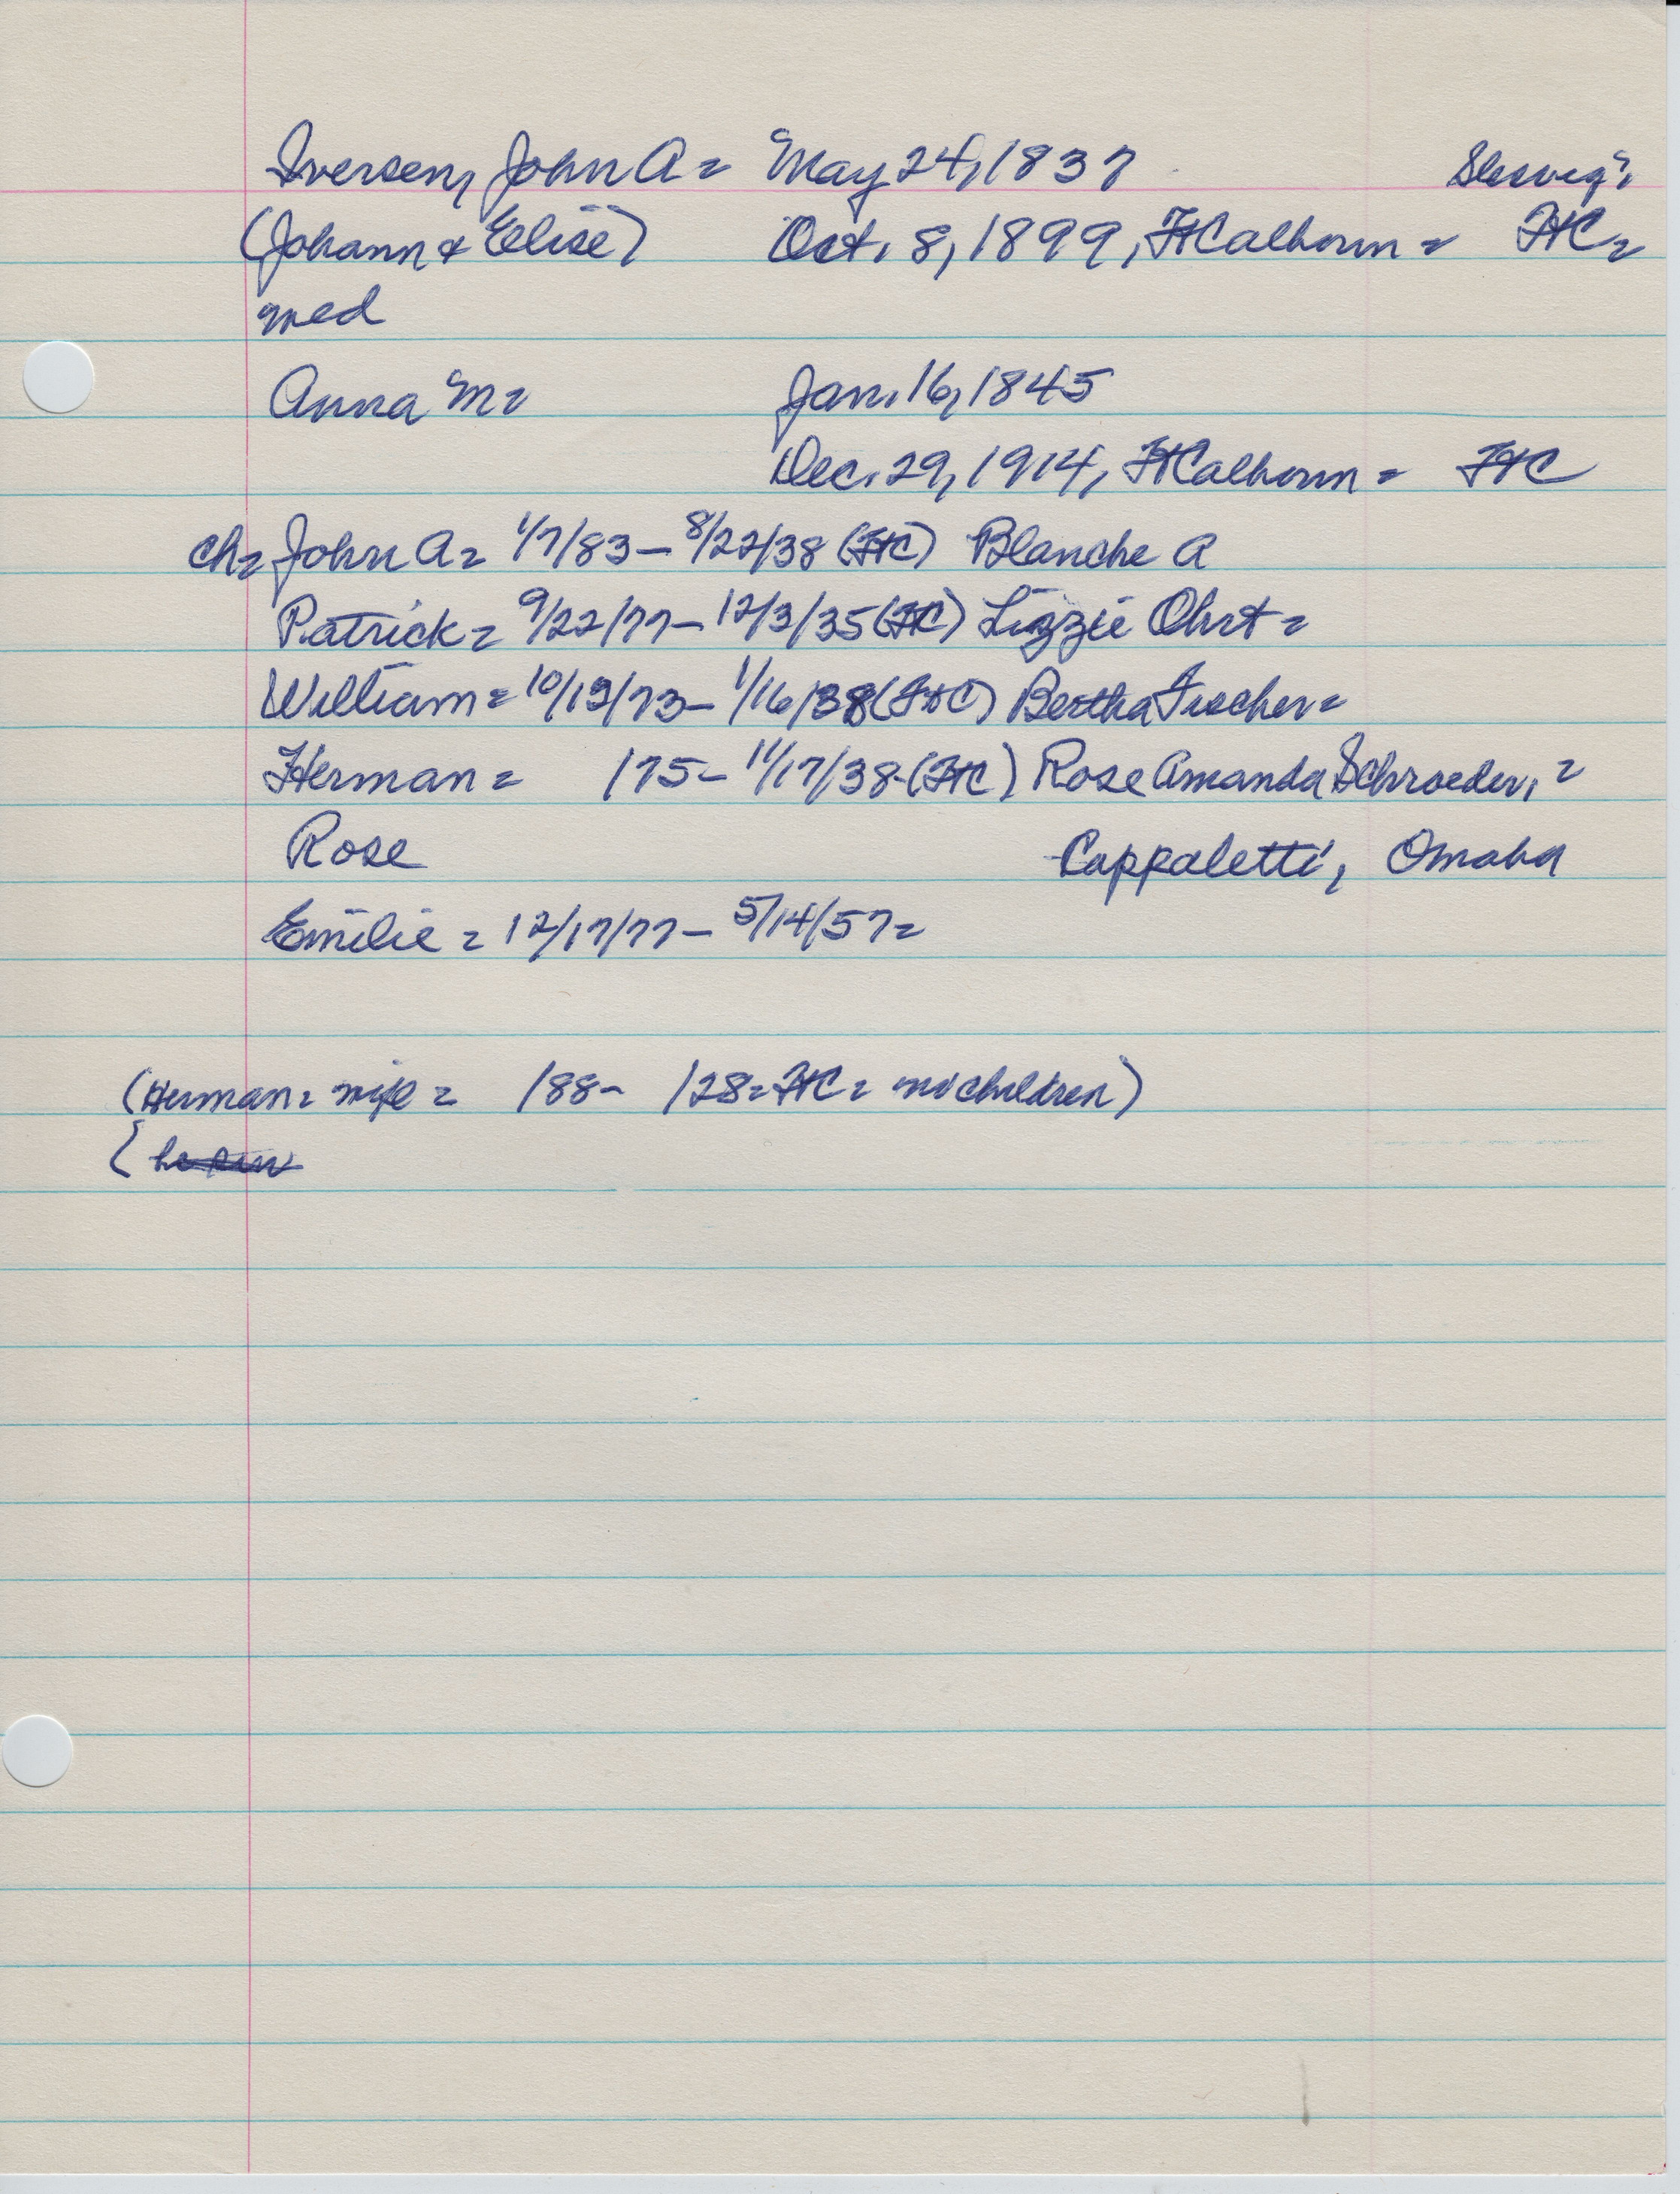 Iversen, John A = May 24, 1837 Slesvig?,
(Johann & Elise) Oct. 8, 1899, FtCalhoun = FtC =
med
Anna M = Jan. 16, 1845
Dec. 29, 1914, FtCalhoun = FtC
ch = John A = 1/7/83 – 8/22/38 (FtC) Blanche A
Patrick = 9/22/77 – 12/3/35 (FtC) Lizzie Ohrt =
William = 10/13/73 – 1/16/38 (FtC) Bertha Fischer =
Herman = /75 – 11/17/38 – (FtC) Rose Amanda Schroeder, =
Rose Cappaletti, Omaha
Emilie = 12/17/77 – 5/14/57 =
(Herman = wife = /88 – /28 = FtC = no children)
(